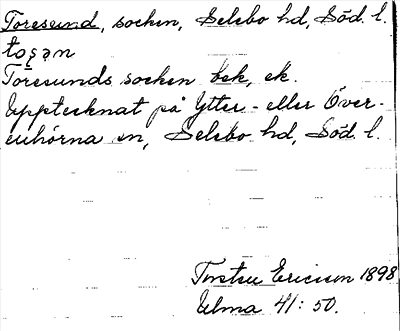 Toresund, socken, Selebo hd, Söd. l.
Toresunds socken bok, ek.
Upptecknat på Ytter- eller Över-
enhörna sn, Selebo hd, Söd. l.
Torsten Ericson 1898
Ulma 41: 50.